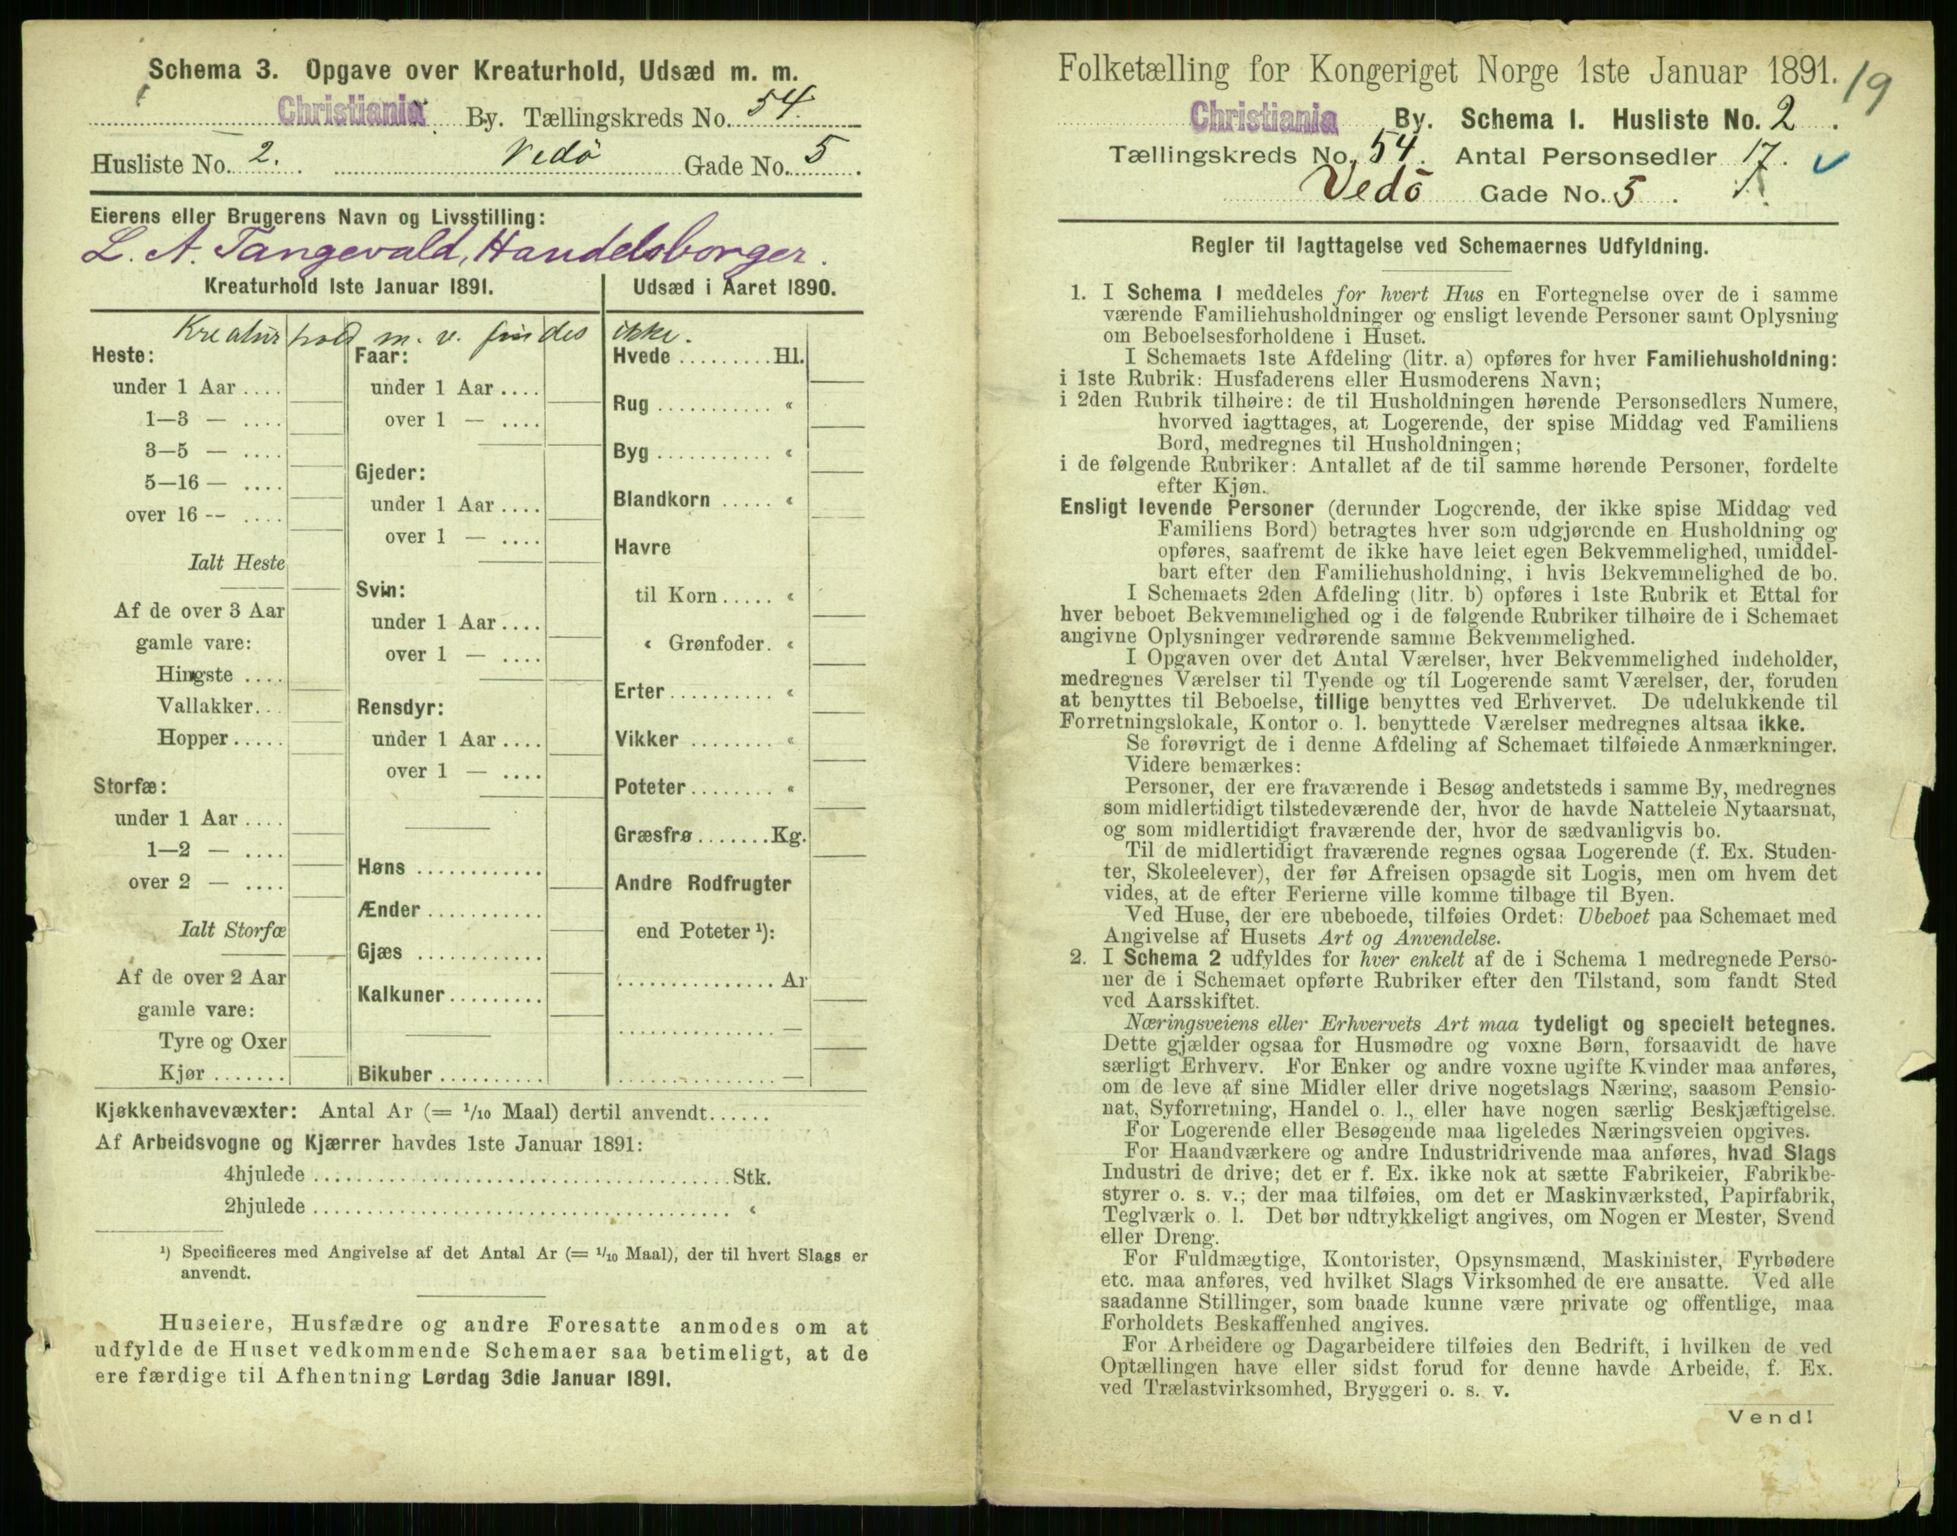 Schema 3. Opgave over Kreaturhold, Udsæd m. m.
Christiania By. Tællingskreds No. 54.
Husliste No. 2. Vedö Gade No. 5
Eierens eller Brugerens Navn og Livsstilling:
L. A. Tangevald, Handelsborger.
Kreaturhold 1ste Januar 1891.
Udsæd i Aaret 1890.
Kreaturhold m. v. findes ikke.
Heste:
under 1 Aar ....
1—3 — ....
3—5 — ....
5—16 — ....
over 16 -- ....
Ialt Heste
Af de over 3 Aar
gamle vare:
Hingste ....
Vallakker...
Hopper.....
Storfæ:
under 1 Aar ....
1—2 — ....
over 2 — ....
Ialt Storfæ
Af de over 2 Aar
gamle vare:
Tyre og Oxer
Kjør .......
Faar:
under 1 Aar ....
over 1 — ....
Gjeder:
under 1 Aar ....
over 1 — ....
Svin:
under 1 Aar ....
over 1 — ....
Rensdyr:
under 1 Aar ....
over 1 — ....
Høns ............
Ænder ...........
Gjæs ............
Kalkuner.........
Bikuber ..........
Hvede ......... Hl.
Rug ........... «
Byg ........... «
Blandkorn ..... «
Havre
til Korn ..... «
« Grønfoder. «
Erter.......... «
Vikker ........ «
Poteter........ «
Græsfrø ....... Kg.
Andre Rodfrugter
end Poteter ¹):
............... Ar
............... —
............... —
Kjøkkenhavevæxter: Antal Ar (= 1/10 Maal) dertil anvendt......
Af Arbeidsvogne og Kjærrer havdes 1ste Januar 1891:
4hjulede ........................................ Stk.
2hjulede ........................................ «
¹) Specificeres med Angivelse af det Antal Ar (= 1/10 Maal), der til hvert Slags er
anvendt.
Huseiere, Husfædre og andre Foresatte anmodes om at
udfylde de Huset vedkommende Schemaer saa betimeligt, at de
ere færdige til Afhentning Lørdag 3die Januar 1891.
Folketælling for Kongeriget Norge 1ste Januar 1891.
19
Christiania By. Schema 1. Husliste No. 2.
Tællingskreds No. 54. Antal Personsedler 17.
Vedö Gade No. 5.
Regler til Iagttagelse ved Schemaernes Udfyldning.
1. I Schema 1 meddeles for hvert Hus en Fortegnelse over de i samme
værende Familiehusholdninger og ensligt levende Personer samt Oplysning
om Beboelsesforholdene i Huset.
I Schemaets 1ste Afdeling (litr. a) opføres for hver Familiehusholdning:
i 1ste Rubrik: Husfaderens eller Husmoderens Navn;
i 2den Rubrik tilhøire: de til Husholdningen hørende Personsedlers Numere,
hvorved iagttages, at Logerende, der spise Middag ved Familiens
Bord, medregnes til Husholdningen;
i de følgende Rubriker: Antallet af de til samme hørende Personer, fordelte
efter Kjøn.
Ensligt levende Personer (derunder Logerende, der ikke spise Middag ved
Familiens Bord) betragtes hver som udgjørende en Husholdning og
opføres, saafremt de ikke have leiet egen Bekvemmelighed, umiddel-
bart efter den Familiehusholdning, i hvis Bekvemmelighed de bo.
I Schemaets 2den Afdeling (litr. b) opføres i 1ste Rubrik et Ettal for
hver beboet Bekvemmelighed og i de følgende Rubriker tilhøire de i Schemaet
angivne Oplysninger vedrørende samme Bekvemmelighed.
I Opgaven over det Antal Værelser, hver Bekvemmelighed indeholder,
medregnes Værelser til Tyende og til Logerende samt Værelser, der, foruden
at benyttes til Beboelse, tillige benyttes ved Erhvervet. De udelukkende til
Forretningslokale, Kontor o. l. benyttede Værelser medregnes altsaa ikke.
Se forøvrigt de i denne Afdeling af Schemaet tilføiede Anmærkninger.
Videre bemærkes:
Personer, der ere fraværende i Besøg andetsteds i samme By, medregnes
som midlertidigt tilstedeværende der, hvor de havde Natteleie Nytaarsnat,
og som midlertidigt fraværende der, hvor de sædvanligvis bo.
Til de midlertidigt fraværende regnes ogsaa Logerende (f. Ex. Studen-
ter, Skoleelever), der før Afreisen opsagde sit Logis, men om hvem det
vides, at de efter Ferierne ville komme tilbage til Byen.
Ved Huse, der ere ubeboede, tilføies Ordet: Ubeboet paa Schemaet med
Angivelse af Husets Art og Anvendelse.
2. I Schema 2 udfyldes for hver enkelt af de i Schema 1 medregnede Perso-
ner de i Schemaet opførte Rubriker efter den Tilstand, som fandt Sted
ved Aarsskiftet.
Næringsveiens eller Erhvervets Art maa tydeligt og specielt betegnes.
Dette gjælder ogsaa for Husmødre og voxne Børn, forsaavidt de have
særligt Erhverv. For Enker og andre voxne ugifte Kvinder maa anføres,
om de leve af sine Midler eller drive nogetslags Næring, saasom Pensio-
nat, Syforretning, Handel o. l., eller have nogen særlig Beskjæftigelse.
For Logerende eller Besøgende maa ligeledes Næringsveien opgives.
For Haandværkere og andre Industridrivende maa anføres, hvad Slags
Industri de drive; det er f. Ex. ikke nok at sætte Fabrikeier, Fabrikbe-
styrer o. s. v.; der maa tilføies, om det er Maskinværksted, Papirfabrik,
Teglværk o. l. Det bør udtrykkeligt angives, om Nogen er Mester, Svend
eller Dreng.
For Fuldmægtige, Kontorister, Opsynsmænd, Maskinister, Fyrbødere
etc. maa anføres, ved hvilket Slags Virksomhed de ere ansatte. Ved alle
saadanne Stillinger, som baade kunne være private og offentlige, maa
Forholdets Beskaffenhed angives.
For Arbeidere og Dagarbeidere tilføies den Bedrift, i hvilken de ved
Optællingen have eller sidst forud for denne havde Arbeide, f. Ex.
ved Trælastvirksomhed, Bryggeri o. s. v.
Vend!